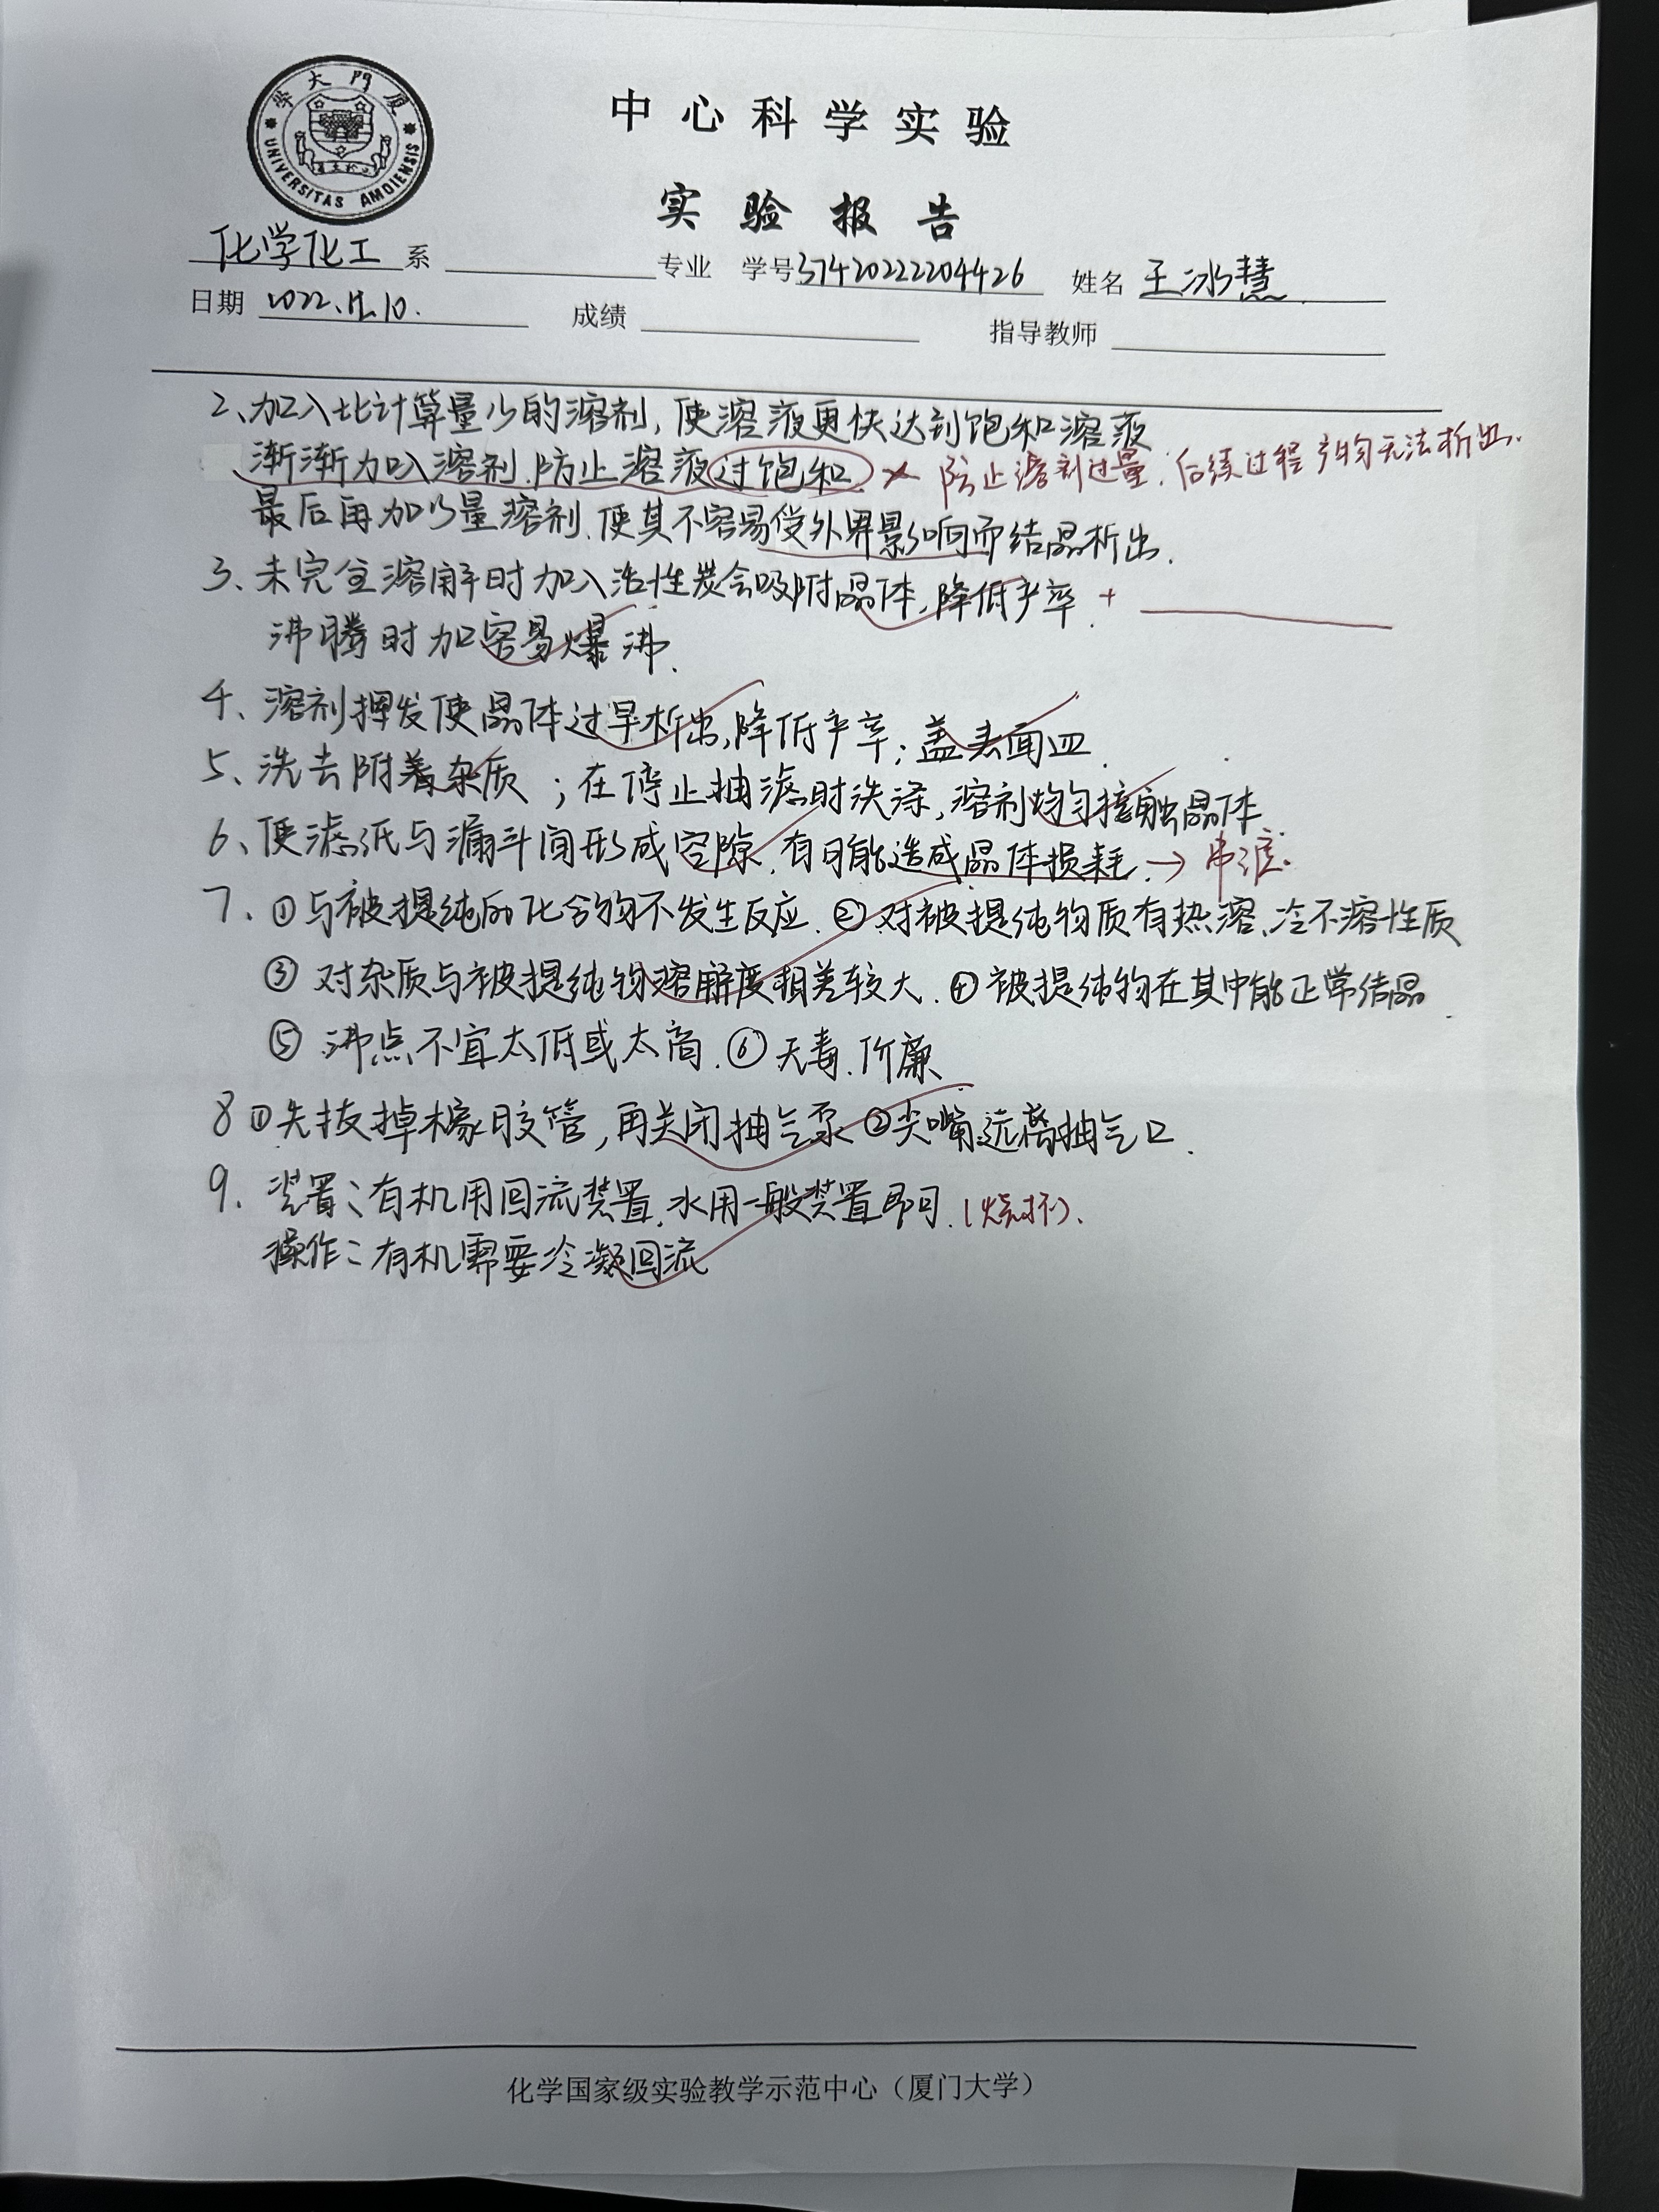 厦門大学
UNIVERSITAS AMOIENSIS
中心科学实验
实验报告
化学化工 系 专业 学号 37420222204426 姓名 王冰慧
日期 2022.12.10. 成绩 指导教师
2、加入比计算量少的溶剂，使溶液更快达到饱和溶液
渐渐加入溶剂.防止溶液过饱和 × 防止溶剂过量.后续过程产物无法析出.
最后再加少量溶剂.使其不容易受外界影响而结晶析出.
3、未完全溶解时加入活性炭会吸附晶体,降低产率. +
沸腾时加容易爆沸.
4、溶剂挥发使晶体过早析出,降低产率;盖表面皿.
5、洗去附着杂质;在停止抽滤时洗涤,溶剂均匀接触晶体.
6、使滤纸与漏斗间形成空隙.有可能造成晶体损耗.→串滤.
7、①与被提纯的化合物不发生反应.②对被提纯物质有热溶、冷不溶性质
③对杂质与被提纯物溶解度相差较大.④被提纯物在其中能正常结晶.
⑤沸点不宜太低或太高.⑥无毒.价廉
8①先拔掉橡胶管,再关闭抽气泵②尖嘴远离抽气口.
9.装置:有机用回流装置.水用一般装置即可.(烧杯).
操作:有机需要冷凝回流
化学国家级实验教学示范中心（厦门大学）